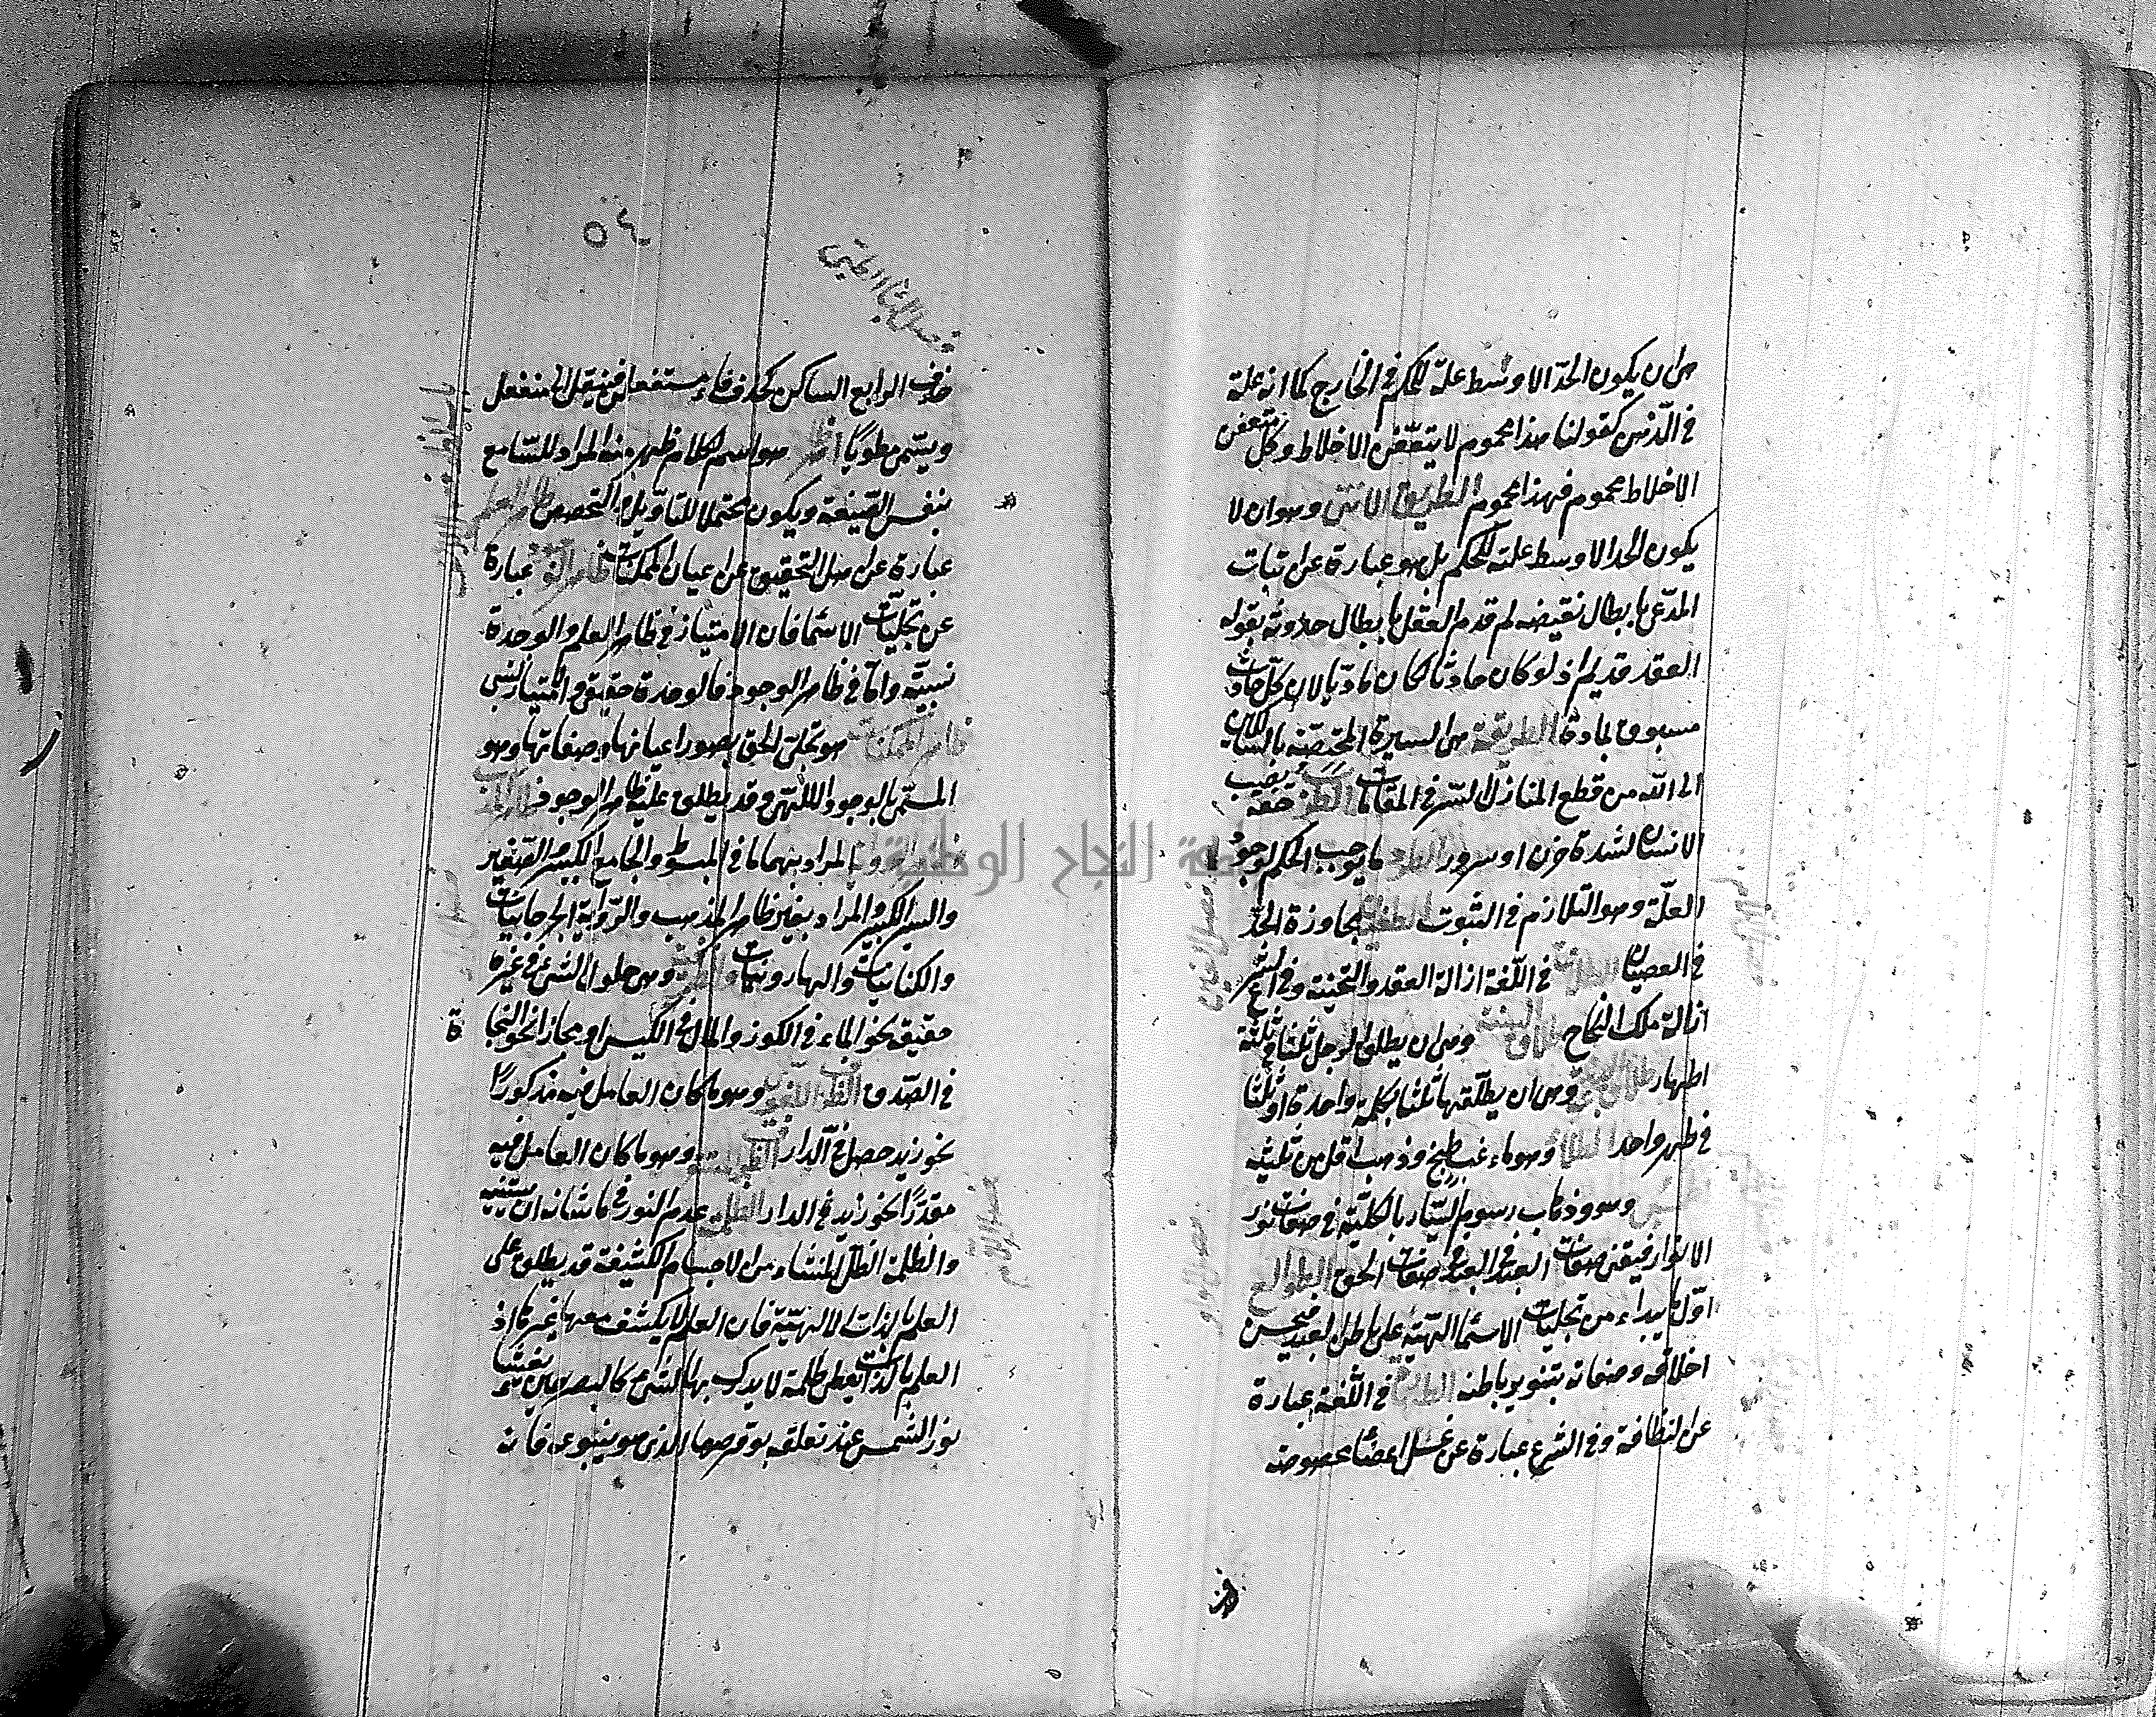 هى ان يكون الحدّ الاوسط علة للحكم فى الخارج كما انه علة
فى الذهن كقولنا هذا محموم لا يتعفن الاخلاط وكل متعفن
الاخلاط محموم فهذا محموم الطريق الانى وهو ان لا
يكون الحد الاوسط علة للحكم بل هو عبارة عن ثبات
المدّعى بابطال نقيضه لم قدم العقل بابطال حدوثه بقوله
العقد قديم اذ لو كان حادثا لكان ماديا لان كل حادث
مسبوق بمادة الطريقة هى السيرة المختصّة بالسالكين
الى الله من قطع المنازل لسّر فى المقامات الطرب خفة يصيب
الانسان لشدة حزن او سرور الطرد ما يوجب الحكم لوجود
العلّة وهو التلازم فى الثبوت الطغيان مجاوزة الحدّ
فى العصيان الطلاق فى اللّغة ازالة العقد والتخلية وفى الشرع
ازالة ملك النكاح طلاق السنة وهى ان يطلق الرجل ثلثا فى ثلثة
اطهار طلاق البدعة وهى ان يطلّقها ثلثا بكلمة واحدة او ثلثا
فى طهر واحد الطلا وهو ماء عنب طبخ وذهب اقل من ثلثيه
الطمس وهو ذهاب رسوم السيّار بالكلّيّة فى صفات نور
الانوار فيفنى صفات العبد فى صفات الحق الطوالع
اوّل ما يبداء من تجليات الاسماء الالهيّة على باطن العبد فيحسن
اخلاقه وصفاته بتنوير باطنه الطهارة فى اللّغة عبارة
عن النظافة وفى الشرع عبارة عن غسل اعضاء مخصوصة
٥٤
حذف الرابع الساكن كحذف فاء مستفعلن فينقل الى مفتعلن
ويسمّى مطويًا الظاهر هو اسم لكلام ظهر منه المراد للسّامع
بنفس الصّيغة ويكون محتملا للتاويل والتخصيص ظاهر العلم
عبارة عن اهل التحقيق عن اعيان الممكنات ظاهر الوجود عبارة
عن تجليات الاسماء فان الامتياز فى ظاهر العلم والوحدة
نسبيّة وامّا فى ظاهر الوجود فالوحدة حقيقى والامتياز نسبى
ظاهر الممكنات هو تجلى الحق بصور اعيانها وصفاتها وهو
المسمّى بالوجود الالهى وقد يطلق عليه ظاهر الوجود
والمراد بهما ما فى المبسوط والجامع الكبير والصّغير
والسير الكبير والمراد بغير ظاهر المذهب والرّواية الجرجانيات
والكيسانيات والهارونيات الظرفية وهى حلول الشئ فى غيره
حقيقة نحو الماء فى الكوز والمال فى الكيس او مجازا نحو النجاة
فى الصّدق الظرف اللغو وهو ما كان العامل فيه مذكورًا
نحو زيد حصل فى الدار الظرف المستقر وهو ما كان العامل فيه
مقدّرًا نحو زيد فى الدار الظلمة عدم النور فيما شانه ان يستنير
والظلمة الظلّ المنشاء من الاجسام الكثيفة قد يطلق على
العلم بالذات الالهيّة فان العلم لا يكشف معها غيرها اذ
العلم بالذات يعطى ظلمة لا يدرك بها شئ كالبصر حين يغشاه
نور الشمس عند تعلقه بوسط قرصها الذى هو ينبوعه فانه